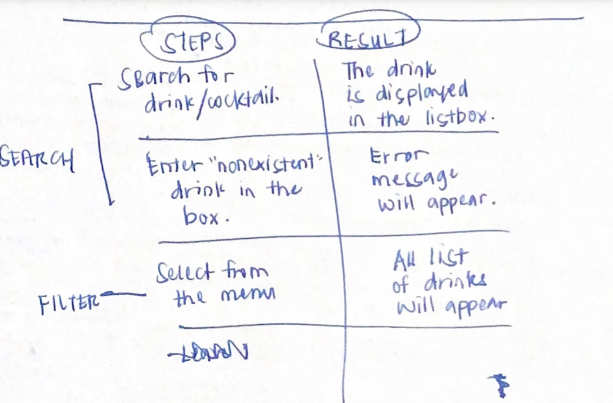 STEPS
RESULT
SEARCH
Search for
drink/cocktail.
The drink
is displayed
in the listbox.
Enter "nonexistent"
drink in the
box.
Error
message
will appear.
FILTER
Select from
the menu
All list
of drinks
will appear